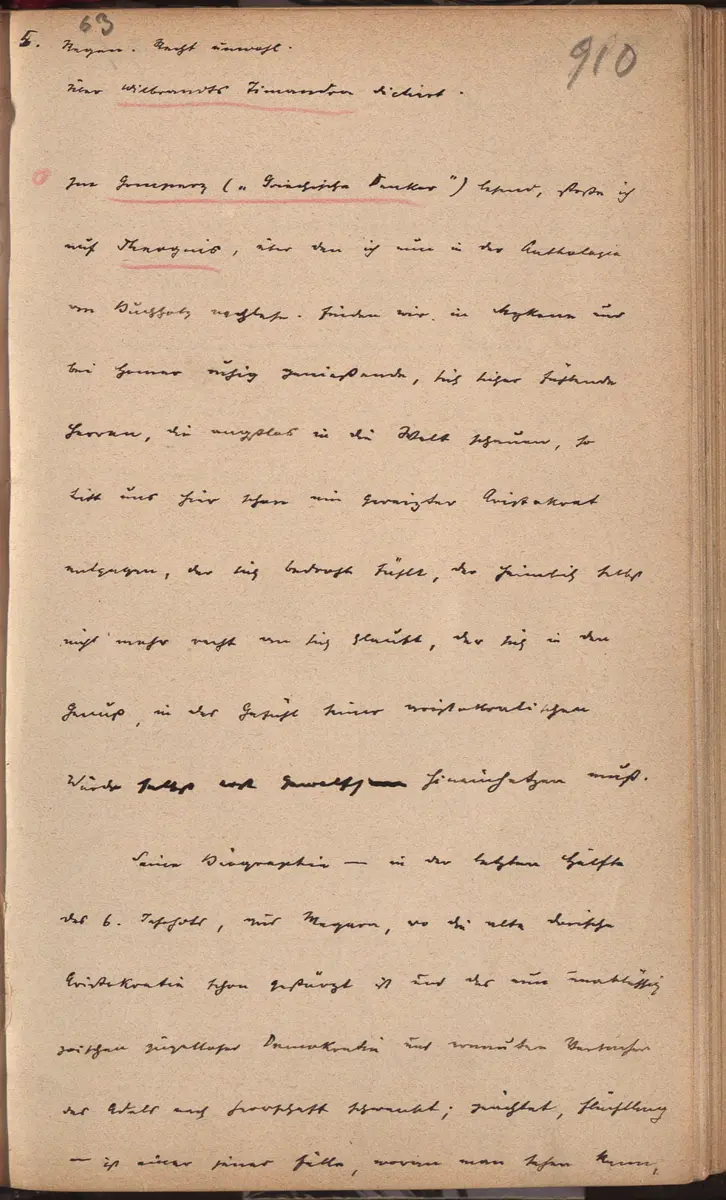 63
910
5. Regen. Recht unwohl.
Über Wilbrandts Timandra dictirt.
Im Gomperz („Griechische Denker") lesend, stoße ich
auf Theognis, über den ich nun in der Anthologie
von Buchholz nachlese. Finden wir in Mykene und
bei Homer ruhig genießende, sich sicher fühlende
Herren, die angstlos in die Welt schauen, so
tritt uns hier schon ein gereizter Aristokrat
entgegen, der sich bedroht fühlt, der heimlich selbst
nicht mehr recht an sich glaubt, der sich in den
Genuß, in das Gefühl seiner aristokratischen
Würde selbst erst hineinhetzen muß.
Seine Biographie — in der letzten Hälfte
des 6. Jahrhdts, aus Megara, wo die alte dorische
Aristokratie schon gestürzt ist und das nun unablässig
zwischen zügelloser Demokratie und erneuten Versuchen
des Adels nach Herrschaft schwankt; geächtet, Flüchtling
— ist einer jener Fälle, woran man sehen kann,